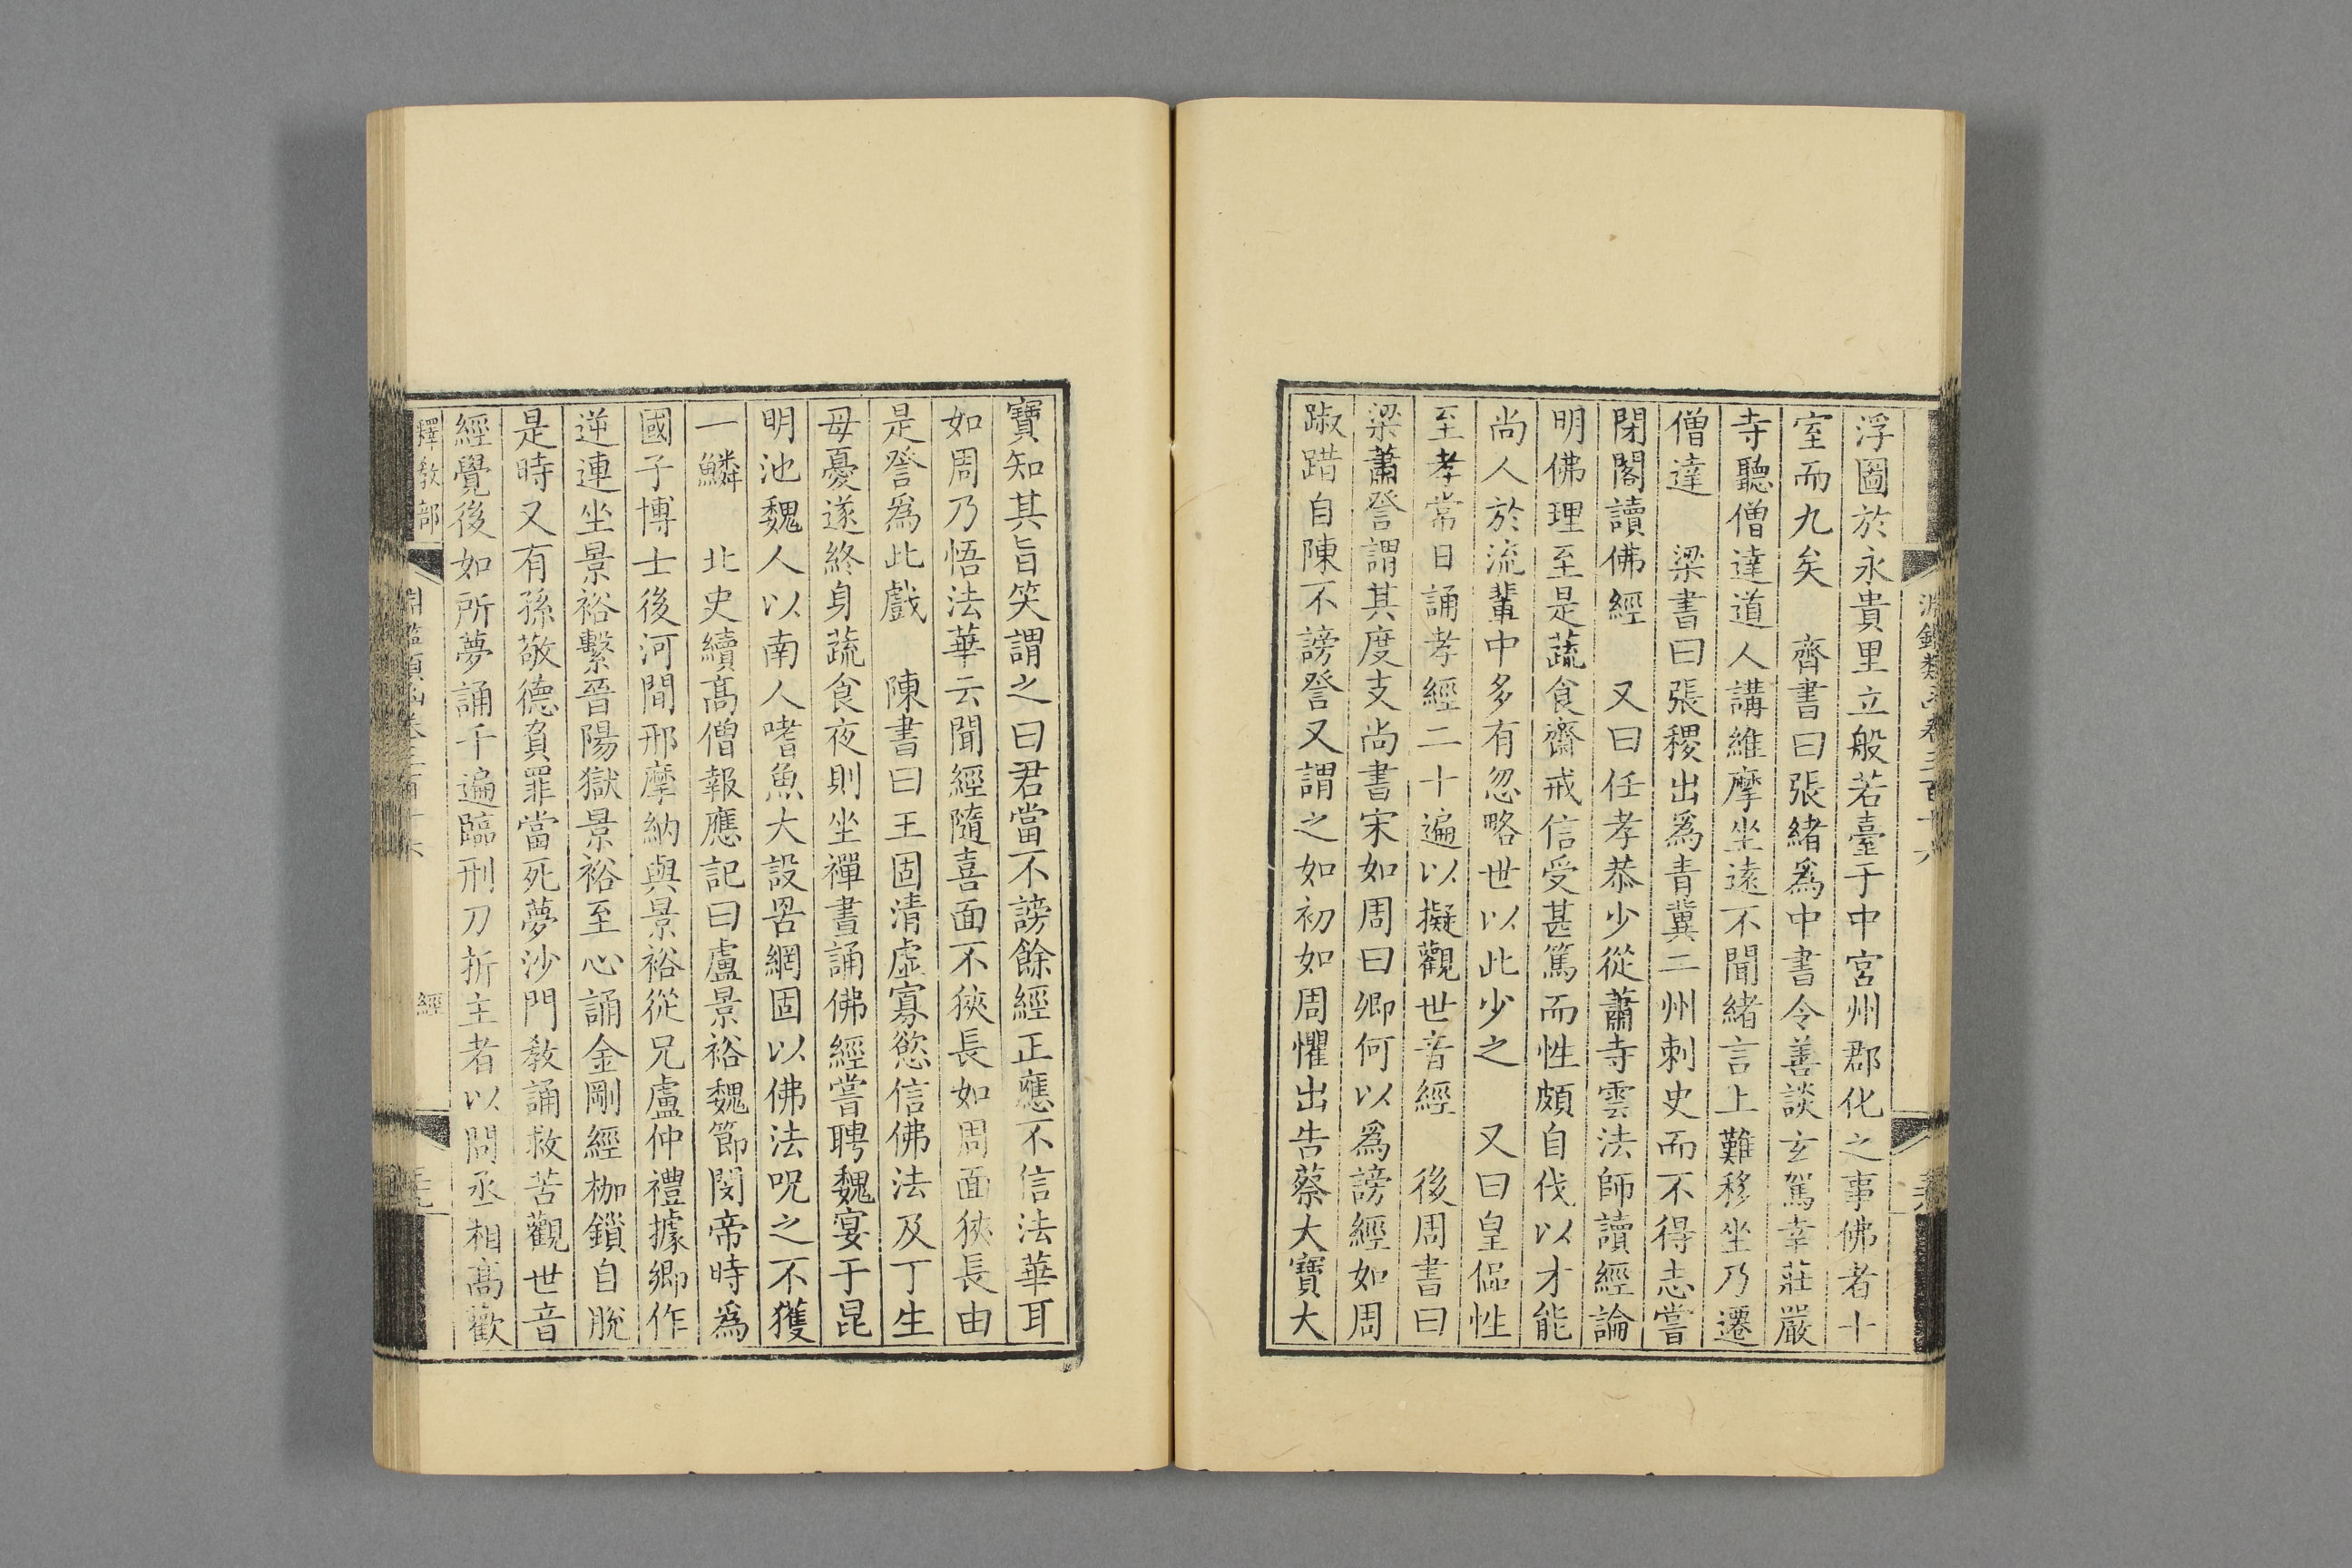 浮圖於永貴里立般若臺于中宮州郡化之事佛者十
室而九矣　齊書曰張緒爲中書令善談玄駕幸莊嚴
寺聽僧達道人講維摩坐遠不聞緒言上難移坐乃遷
僧達　梁書曰張稷出爲青冀二州刺史而不得志嘗
閉閣讀佛經　又曰任孝恭少從蕭寺雲法師讀經論
明佛理至是蔬食齋戒信受甚篤而性頗自伐以才能
尚人於流輩中多有忽略世以此少之　又曰皇侃性
至孝常日誦孝經二十遍以擬觀世音經　後周書曰
梁蕭詧謂其度支尚書宋如周曰卿何以爲謗經如周
踧踖自陳不謗詧又謂之如初如周懼出告蔡大寶大
寶知其旨笑謂之曰君當不謗餘經正應不信法華耳
如周乃悟法華云聞經隨喜面不狹長如周面狹長由
是詧爲此戲　陳書曰王固清虛寡慾信佛法及丁生
母憂遂終身蔬食夜則坐禪晝誦佛經嘗聘魏宴于昆
明池魏人以南人嗜魚大設罟網固以佛法呪之不獲
一鱗　北史續髙僧報應記曰盧景裕魏節閔帝時爲
國子博士後河間邢摩納與景裕從兄盧仲禮據鄉作
逆連坐景裕繫晉陽獄景裕至心誦金剛經枷鎖自脫
是時又有孫敬德負罪當死夢沙門敎誦救苦觀世音
經覺後如所夢誦千遍臨刑刀折主者以問丞相髙歡
釋敎部
經